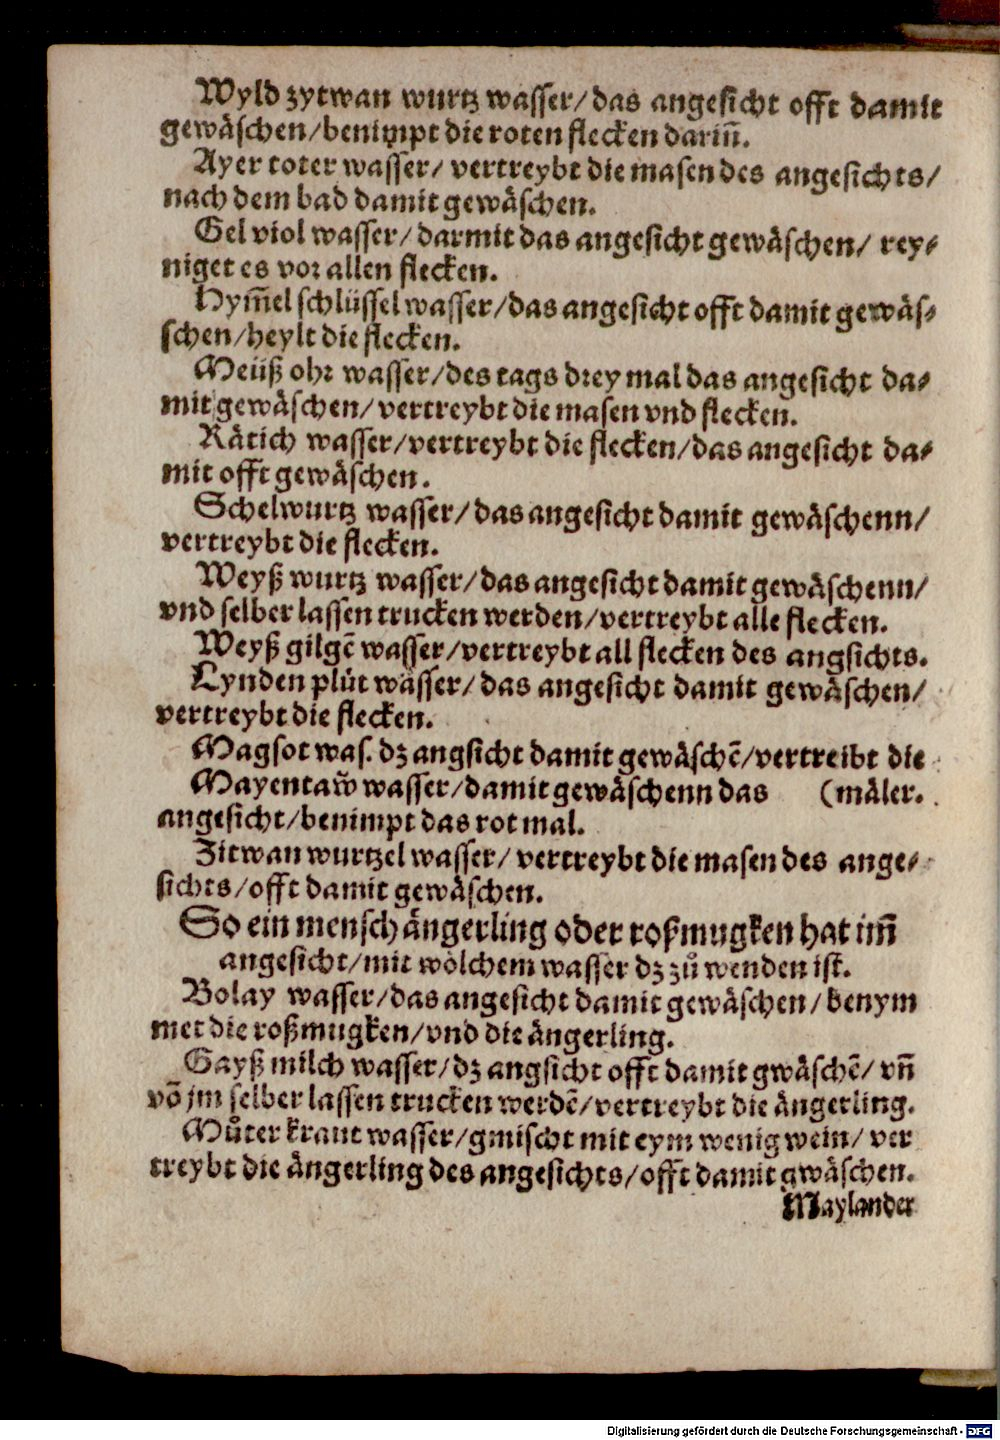 Wyld zytwan wurtz wasser/das angesicht offt damit
gewäschen/benimpt die roten flecken dariñ.
Ayer toter wasser/ vertreybt die masen des angesichts/
nach dem bad damit gewäschen.
Gel viol wasser/darmit das angesicht gewäschen/ rey-
niget es vor allen flecken.
Hym̃el schlüssel wasser/das angesicht offt damit gewäs-
schen/heylt die flecken.
Meüß ohr wasser/des tags drey mal das angesicht da-
mit gewäschen/vertreybt die masen vnd flecken.
Rätich wasser/vertreybt die flecken/das angesicht da-
mit offt gewäschen.
Schelwurtz wasser/das angesicht damit gewäschenn/
vertreybt die flecken.
Weyß wurtz wasser/das angesicht damit gewäschenn/
vnd selber lassen trucken werden/vertreybt alle flecken.
Weyß gilgẽ wasser/vertreybt all flecken des angsichts.
Lynden plůt wasser/das angesicht damit gewäschen/
vertreybt die flecken.
Magsot was. dz angsicht damit gewäschẽ/vertreibt die
Mayentaw̃ wasser/damit gewäschenn das (mäler.
angesicht/benimpt das rot mal.
Zitwan wurtzel wasser/vertreybt die masen des ange-
sichts/offt damit gewäschen.
So ein mensch ängerling oder roßmugken hat im̃
angesicht/mit wölchem wasser dz zů wenden ist.
Bolay wasser/das angesicht damit gewäschen/benym
met die roßmugken/vnd die ängerling.
Gayß milch wasser/dz angsicht offt damit gwäschẽ/vñ
võ jm selber lassen trucken werdẽ/vertreybt die ängerling.
Můter kraut wasser/gmischt mit eym wenig wein/ ver
treybt die ängerling des angesichts/offt damit gwäschen.
Maylander
Digitalisierung gefördert durch die Deutsche Forschungsgemeinschaft - DFG